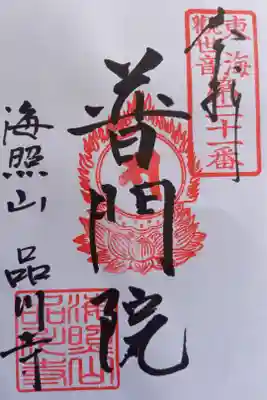 奉拝
東海第三十一番
觀世音
普門院
海照山 品川寺
海照山
品川寺